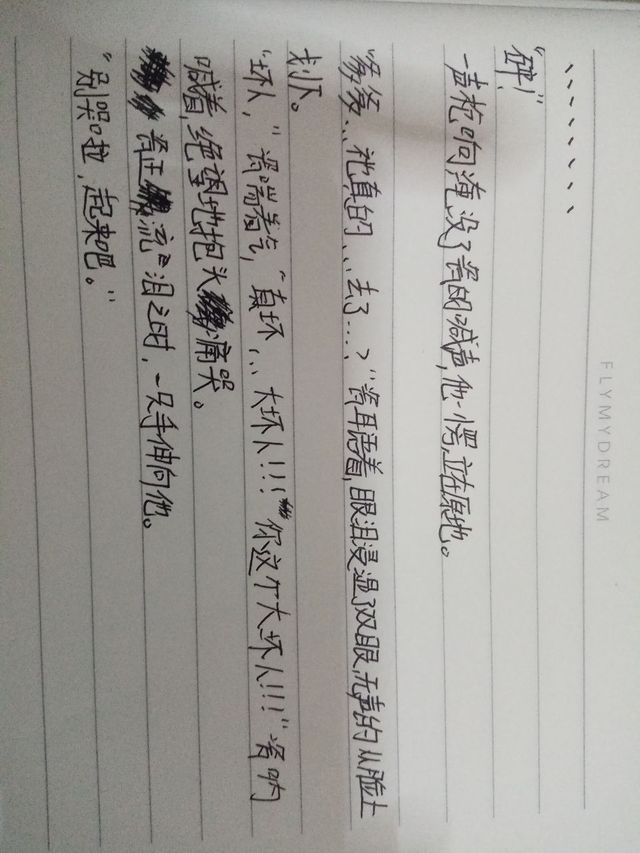 FLYMYDREAM
、、、、、、、
“砰!”
一声枪响淹没了瓷的喊声,他一愣,立在原地。
“爹爹...祂真的...去了...?”瓷耳语着,眼泪浸湿了双眼,无声的从脸上
划下。
“坏人,”瓷喘着气,“真坏...大坏人!!!”你这个大坏人!!!”瓷呐
喊着,绝望地抱头痛哭。
瓷正流泪之时,一只手伸向他。
“别哭啦,起来吧。”